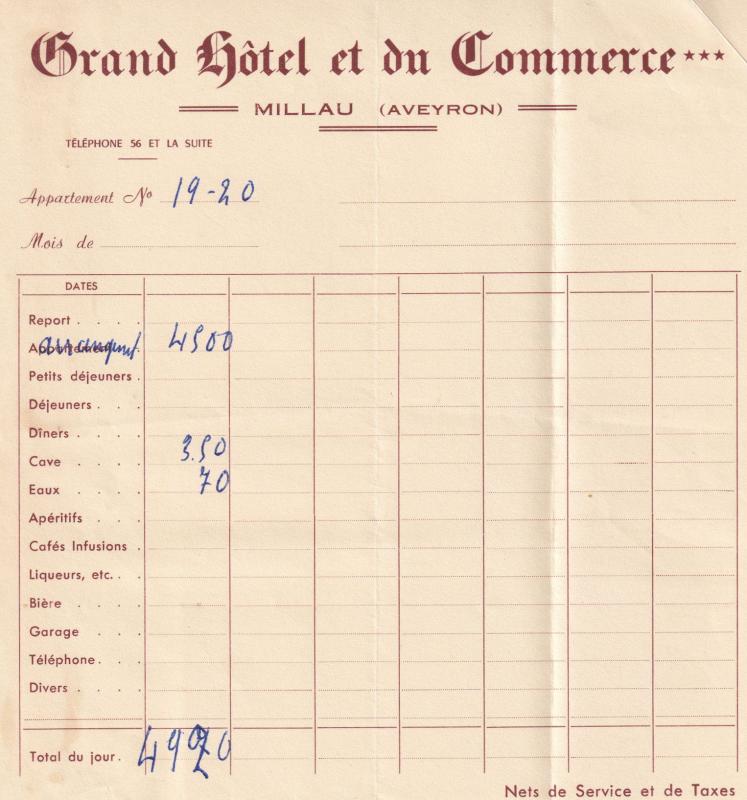 Grand Hôtel et du Commerce ***
MILLAU (AVEYRON)
TÉLÉPHONE 56 ET LA SUITE
Appartement No 19-20
Mois de
DATES
Report . . . .
Appartement . 4500
Petits déjeuners .
Déjeuners . . .
Dîners . . . .
Cave . . . . 3.50
Eaux . . . . 70
Apéritifs . . .
Cafés Infusions .
Liqueurs, etc. .
Bière . . . .
Garage . . .
Téléphone . . .
Divers . . . .
Total du jour . 4920
Nets de Service et de Taxes